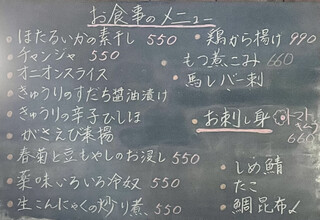 お食事のメニュー
ほたるいかの素干し 550
チャンジャ 550
オニオンスライス
きゅうりのすだち醤油漬け
きゅうりの辛子ひしほ
がさえび素揚
春菊と豆もやしのお浸し 550
薬味いろいろ冷奴 550
生こんにゃくの炒り煮 550
鶏から揚げ 990
もつ煮こみ 660
馬レバー刺
お刺し身
トマト
660
しめ鯖
たこ
鯛昆布〆